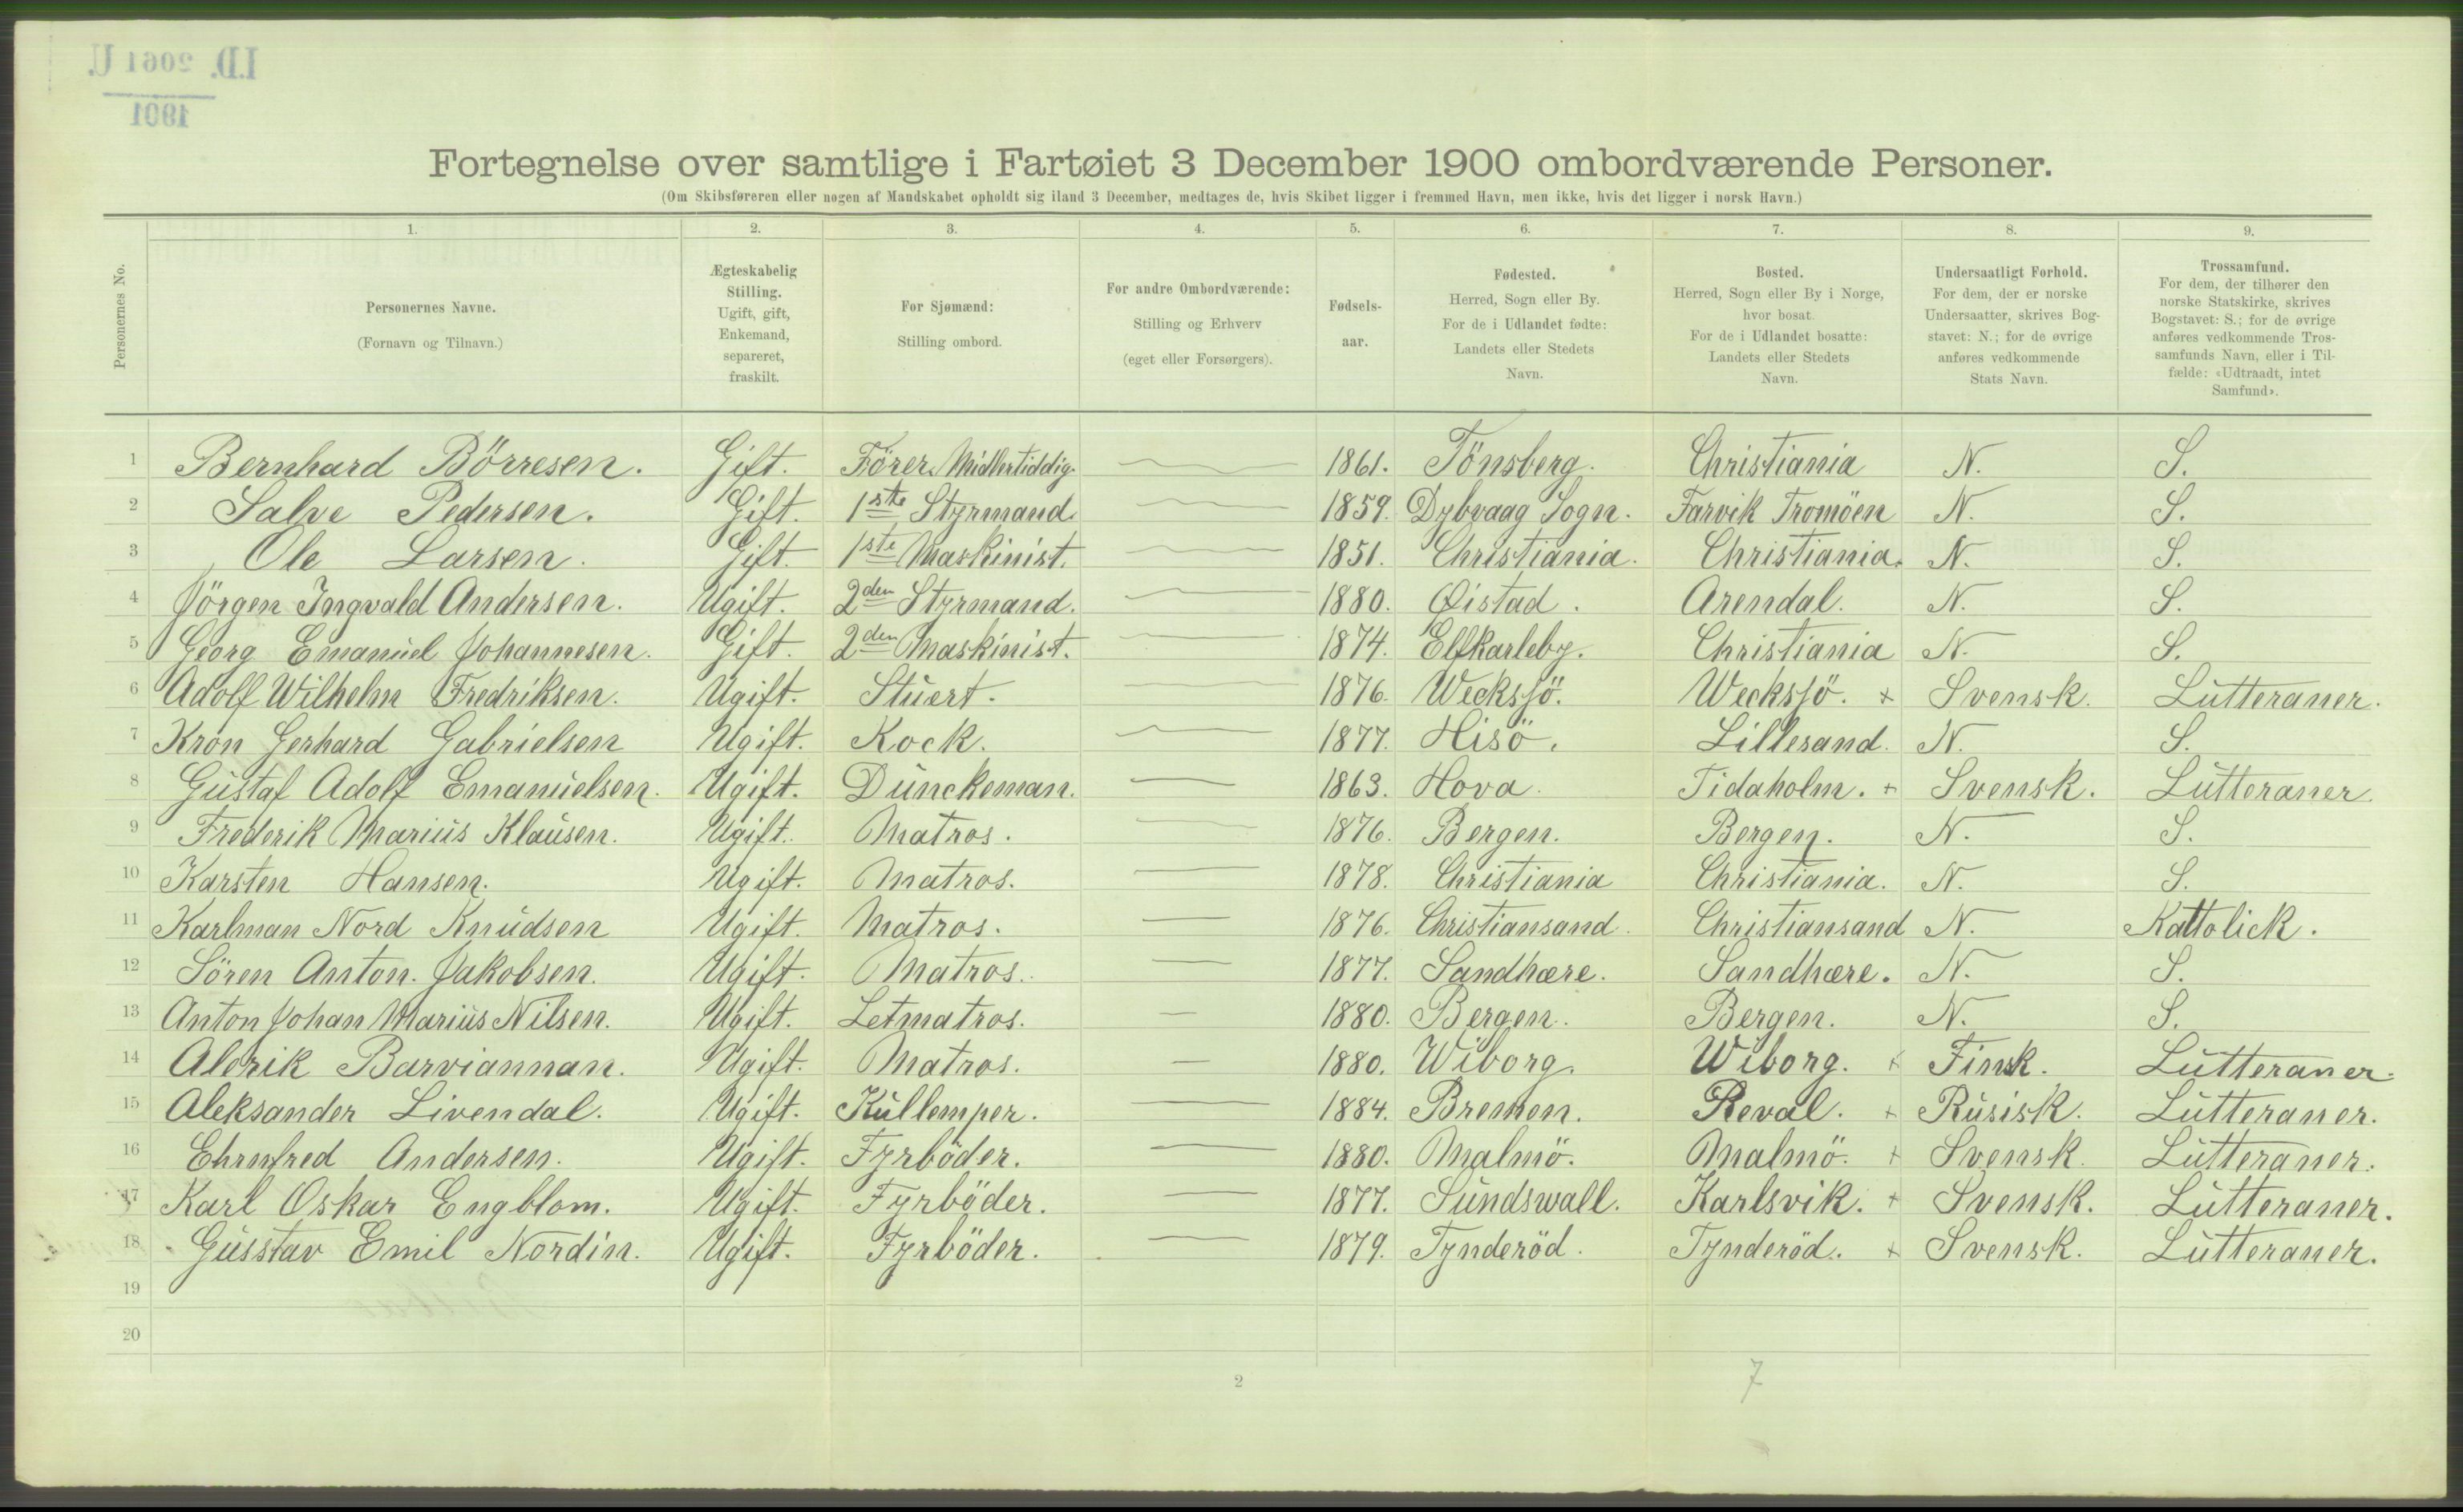 I.D. 2061 U.
1901
Fortegnelse over samtlige i Fartøiet 3 December 1900 ombordværende Personer.
(Om Skibsføreren eller nogen af Mandskabet opholdt sig iland 3 December, medtages de, hvis Skibet ligger i fremmed Havn, men ikke, hvis det ligger i norsk Havn.)
Personernes No.
1. 2. 3. 4. 5. 6. 7. 8. 9.
Personernes Navne.
(Fornavn og Tilnavn.)
Ægteskabelig
Stilling.
Ugift, gift,
Enkemand,
separeret,
fraskilt.
For Sjømænd:
Stilling ombord.
For andre Ombordværende:
Stilling og Erhverv
(eget eller Forsørgers).
Fødsels-
aar.
Fødested.
Herred, Sogn eller By.
For de i Udlandet fødte:
Landets eller Stedets
Navn.
Bosted.
Herred, Sogn eller By i Norge,
hvor bosat.
For de i Udlandet bosatte:
Landets eller Stedets
Navn.
Undersaatligt Forhold.
For dem, der er norske
Undersaatter, skrives Bog-
stavet: N.; for de øvrige
anføres vedkommende
Stats Navn.
Trossamfund.
For dem, der tilhører den
norske Statskirke, skrives
Bogstavet: S.; for de øvrige
anføres vedkommende Tros-
samfunds Navn, eller i Til-
fælde: «Udtraadt, intet
Samfund».
1 Bernhard Börresen. Gift. Förer Midlertiddig. 1861. Tönsberg. Christiania N. S.
2 Salve Pedersen. Gift. 1ste Styrmand. 1859. Dybvaag Sogn. Farvik Tromöen N. S.
3 Ole Larsen. Gift. 1ste Maskinist. 1851. Christiania. Christiania. N. S.
4 Jörgen Ingvald Andersen. Ugift. 2den Styrmand. 1880. Øistad. Arendal. N. S.
5 Georg Emanuel Johannesen. Gift. 2den Maskinist. 1874. Elfkarleby. Christiania N. S.
6 Adolf Wilhelm Fredriksen. Ugift. Stuert. 1876. Wecksjö. Wecksjö. + Svensk. Lutteraner.
7 Kron Gerhard Gabrielsen Ugift. Kock. 1877. Hisö. Lillesand. N. S.
8 Gustaf Adolf Emanuelsen. Ugift. Dunckeman. 1863. Hova. Tidaholm. + Svensk. Lutteraner.
9 Frederik Marius Klausen. Ugift. Matros. 1876. Bergen. Bergen. N. S.
10 Karsten Hansen. Ugift. Matros. 1878. Christiania Christiania. N. S.
11 Karlman Nord Knudsen Ugift. Matros. 1876. Christiansand. Christiansand N. Kattolick.
12 Sören Anton. Jakobsen. Ugift. Matros. 1877. Sandhære. Sandhære. N. S.
13 Anton Johan Marius Nilsen. Ugift. Letmatros. 1880. Bergen. Bergen. N. S.
14 Alerik Barviannan. Ugift. Matros. 1880. Wiborg. Wiborg. + Finsk. Lutteraner.
15 Aleksander Livendal. Ugift. Kullemper. 1884. Bremen. Reval. + Rusisk. Lutteraner.
16 Ehrnfred Andersen. Ugift. Fyrböder. 1880. Malmö. Malmö. + Svensk. Lutteraner.
17 Karl Oskar Engblom. Ugift. Fyrböder. 1877. Sundswall. Karlsvik. + Svensk. Lutteraner.
18 Gusstav Emil Nordin. Ugift. Fyrböder. 1879. Tynderöd. Tynderöd. + Svensk. Lutteraner.
19
20
2
7